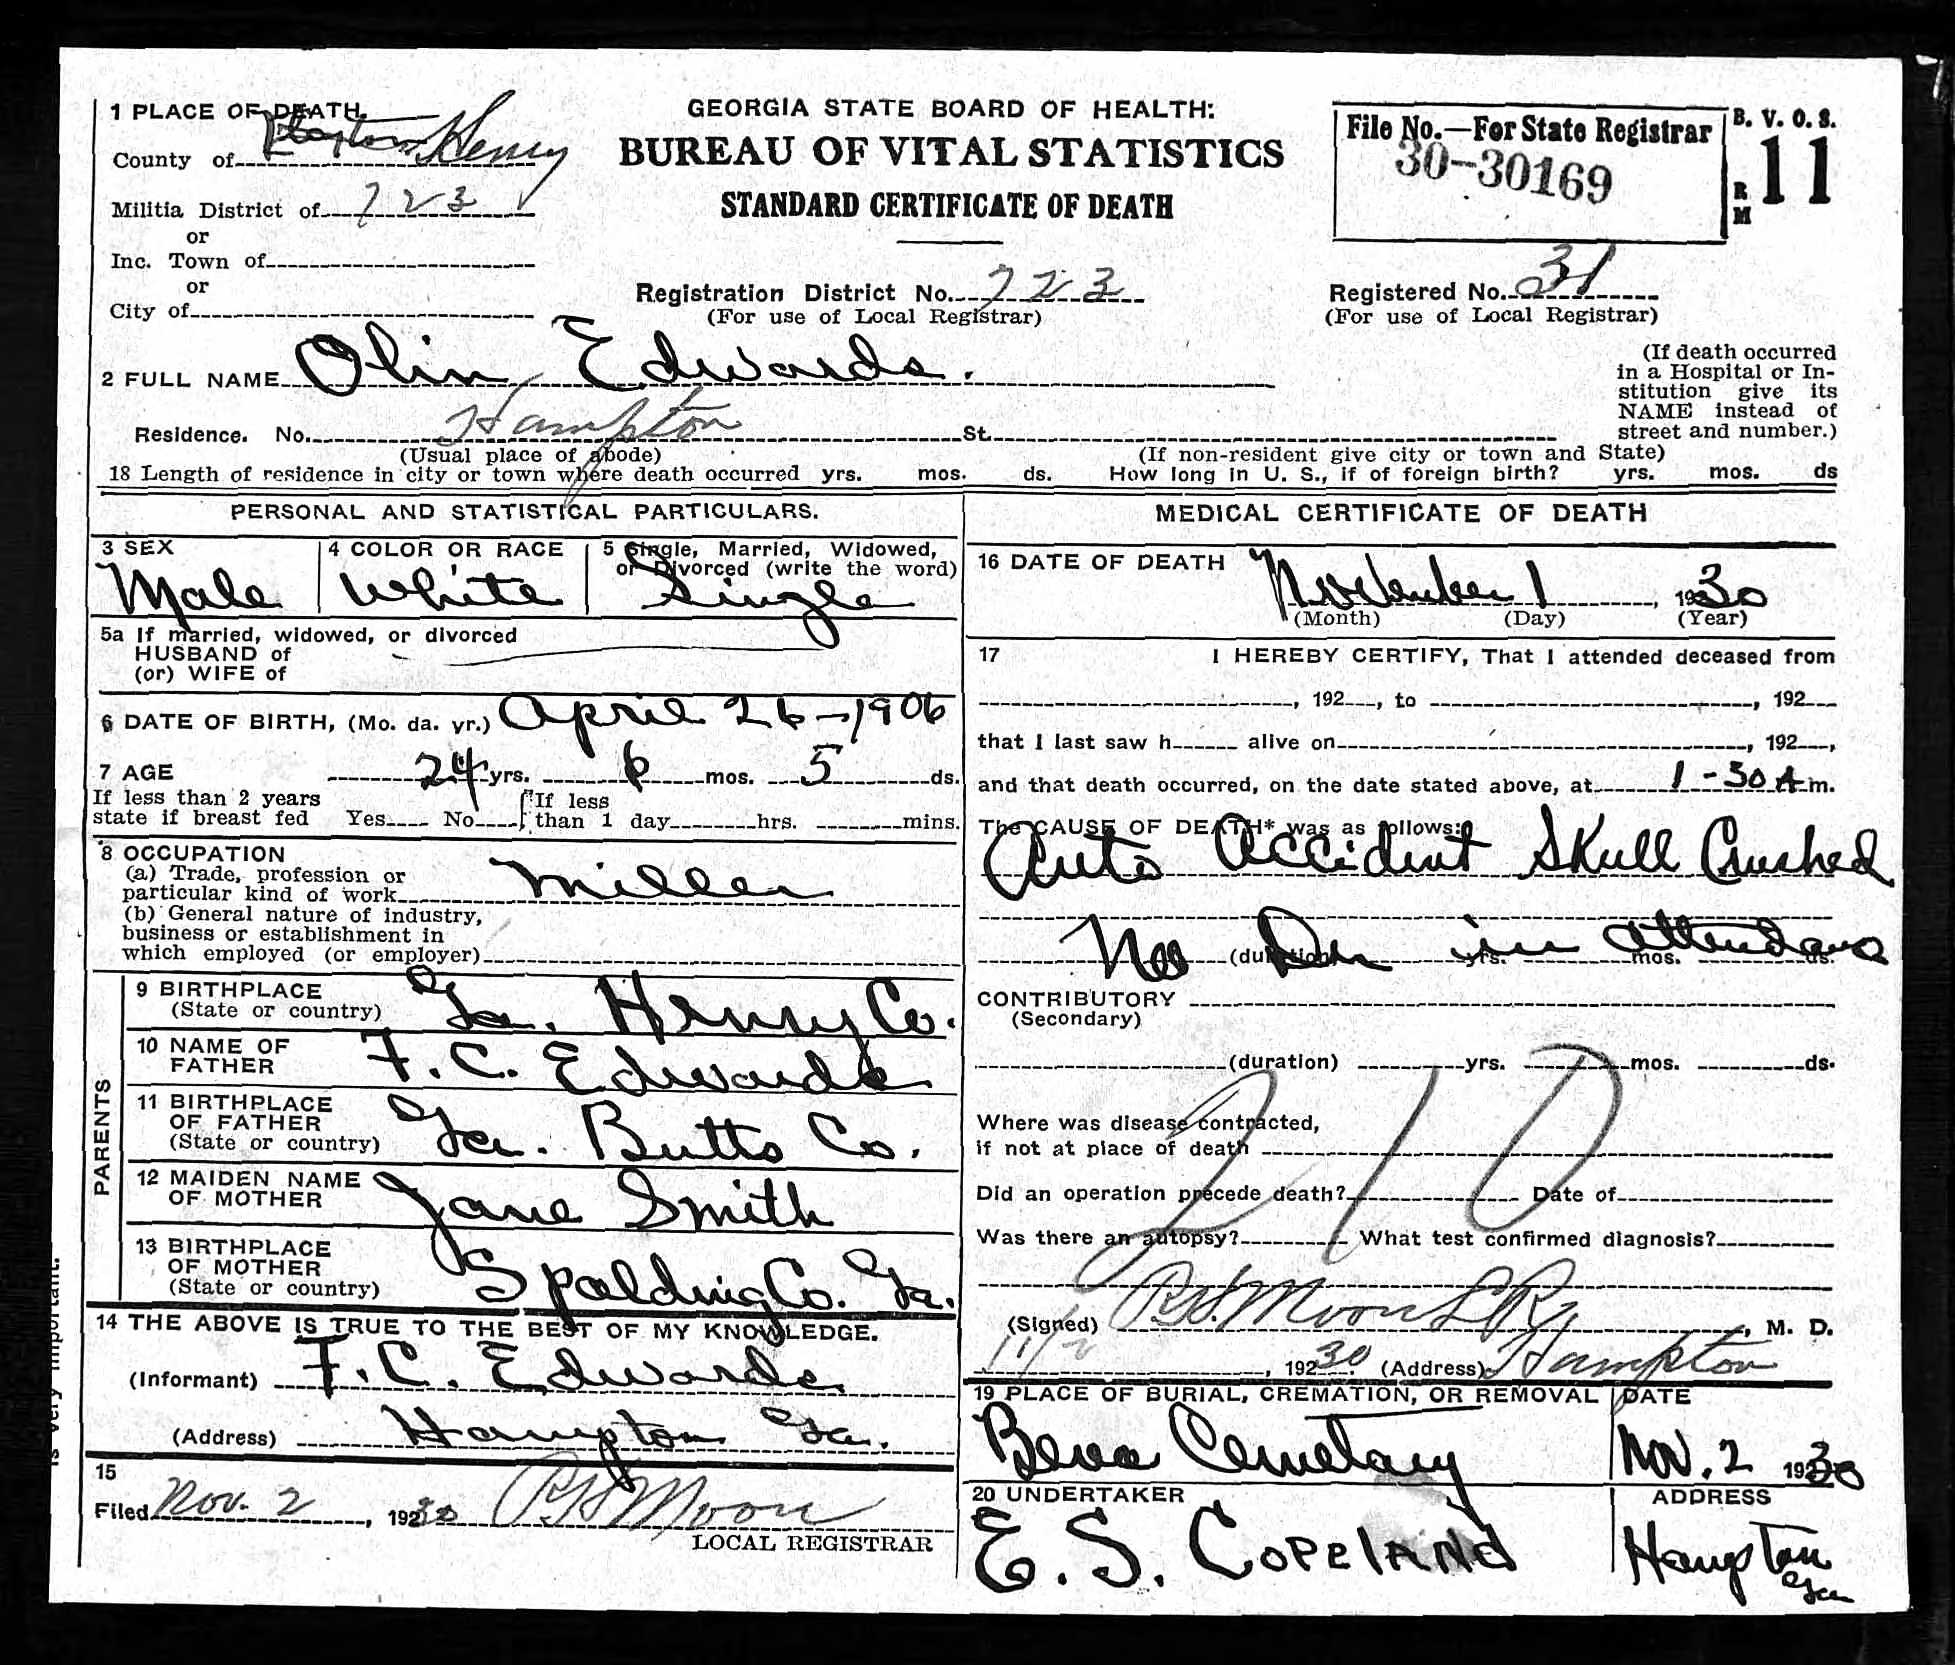 1 PLACE OF DEATH.
County of Clayton Henry
Militia District of 723
or
Inc. Town of
or
City of
GEORGIA STATE BOARD OF HEALTH:
BUREAU OF VITAL STATISTICS
STANDARD CERTIFICATE OF DEATH
Registration District No. 723
(For use of Local Registrar)
File No.—For State Registrar
30-30169
B. V. O. S.
R M 11
Registered No. 31
(For use of Local Registrar)
2 FULL NAME Olin Edwards.
(If death occurred
in a Hospital or In-
stitution give its
NAME instead of
street and number.)
Residence. No. Hampton St.
(Usual place of abode) (If non-resident give city or town and State)
18 Length of residence in city or town where death occurred yrs. mos. ds. How long in U. S., if of foreign birth? yrs. mos. ds
PERSONAL AND STATISTICAL PARTICULARS.
3 SEX
Male
4 COLOR OR RACE
White
5 Single, Married, Widowed,
or Divorced (write the word)
Single
5a If married, widowed, or divorced
HUSBAND of
(or) WIFE of
6 DATE OF BIRTH, (Mo. da. yr.) April 26-1906
7 AGE 24 yrs. 6 mos. 5 ds.
If less than 2 years
state if breast fed Yes No
If less
than 1 day hrs. mins.
8 OCCUPATION
(a) Trade, profession or
particular kind of work Miller
(b) General nature of industry,
business or establishment in
which employed (or employer)
PARENTS
9 BIRTHPLACE
(State or country) Ga. Henry Co.
10 NAME OF
FATHER F. C. Edwards
11 BIRTHPLACE
OF FATHER
(State or country) Ga. Butts Co.
12 MAIDEN NAME
OF MOTHER Jane Smith
13 BIRTHPLACE
OF MOTHER
(State or country) Spalding Co. Ga.
14 THE ABOVE IS TRUE TO THE BEST OF MY KNOWLEDGE.
(Informant) F. C. Edwards
(Address) Hampton Ga.
15
Filed Nov. 2, 192 30 Moon
LOCAL REGISTRAR
is very important.
MEDICAL CERTIFICATE OF DEATH
16 DATE OF DEATH November 1, 1930
(Month) (Day) (Year)
17 I HEREBY CERTIFY, That I attended deceased from
, 192 , to , 192
that I last saw h alive on , 192 ,
and that death occurred, on the date stated above, at 1-30 A m.
The CAUSE OF DEATH* was as follows:
Auto Accident Skull Crushed
No Dr in attendance
(duration) yrs. mos. ds.
CONTRIBUTORY
(Secondary)
(duration) yrs. mos. ds.
210
Where was disease contracted,
if not at place of death
Did an operation precede death? Date of
Was there an autopsy? What test confirmed diagnosis?
(Signed) Moon L R, M. D.
11/2, 192 30 (Address) Hampton
19 PLACE OF BURIAL, CREMATION, OR REMOVAL
Cemetary
DATE
Nov. 2 1930
20 UNDERTAKER
E. S. Copeland
ADDRESS
Hampton
Ga